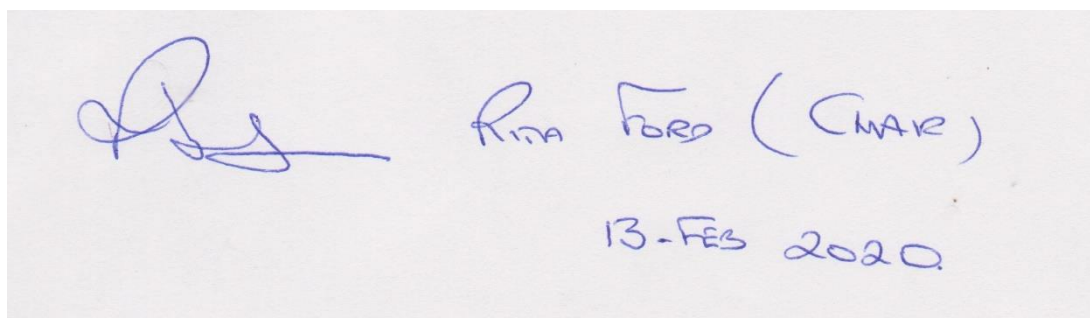 Rita Ford (Chair)
13-Feb 2020.